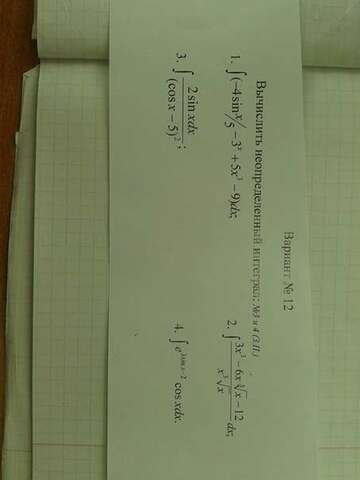 Вариант № 12
Вычислить неопределенный интеграл: №3 и 4 (З.П.)
1. ∫(−4sin x/5 − 3ˣ + 5x³ − 9)dx;
2. ∫ (3x³ − 6x∛x − 12)/(x³√x) dx;
3. ∫ 2sin xdx/(cos x − 5)²;
4. ∫ e^(3sin x−2) cos xdx.